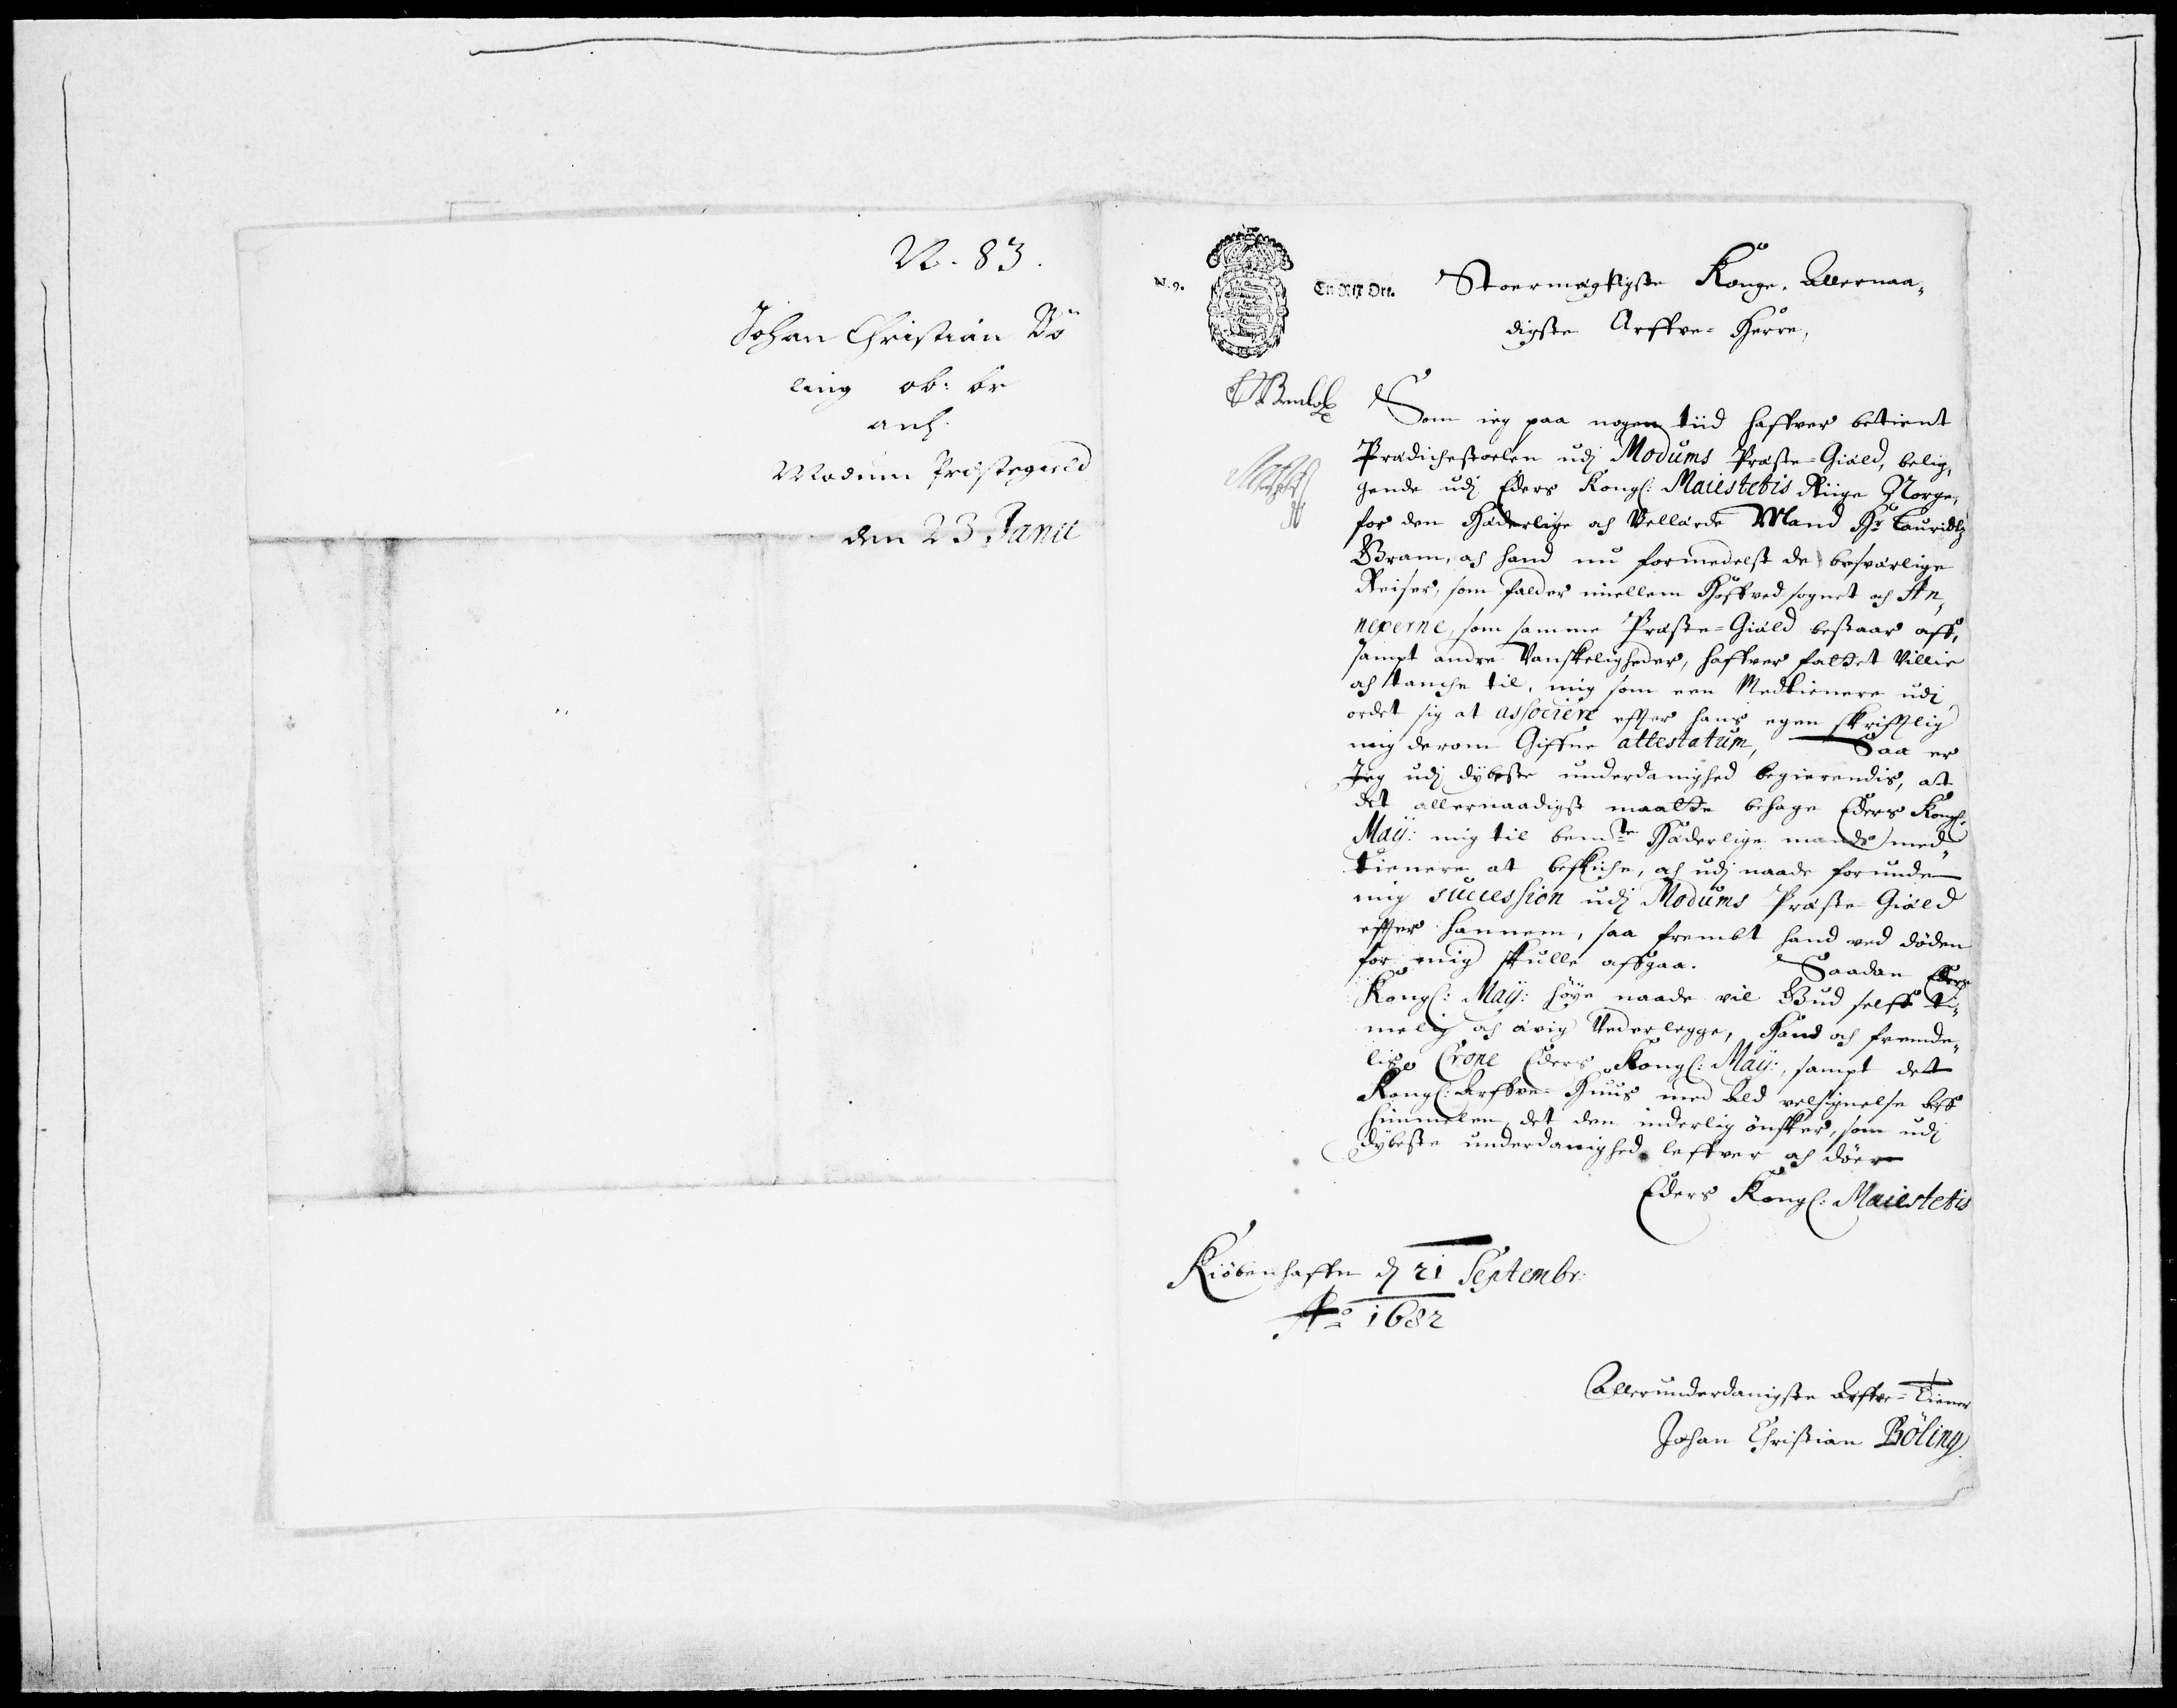 N. 83.
Johan Christian Bö
ling
anh.
Modum Præstegield
den 23 Janu
N. 9.
En Ort Ort.
Stoermægtigste Konge, Allernaa,,
digste Arffve-Herre,
Som ieg paa nogen tiid haffver betient
Prædichestoelen udj Modums Præste-Giæld, belig,,
gende udj Eders Kongl: Maiestetis Riige Norge,
for den Hæderlige och Vellærde Mand Hr Lauridtz
Bram, och hand nu formedelst de besværlige
Reiser, som falder imellem Hoffved sognet och An,,
nexerne, som samme Præste-Giæld bestaar aff,
sampt andre Vanskeligheder, haffver fattet Villie
och tanche til, mig som een Medtienere udj
ordet sig at associere effter hans egen skrifftlig
mig derom Giffne attestatum, Saa er
Jeg udj dybeste underdanighed begierendis, at
det allernaadigst maatte behage Eders Kongl:
Maij: mig til bemte Hæderlige mands med,,
tienere at beskiche, och udj naade forunde
mig succession udj Modums Præste-Giæld
effter hannem, saa frembt hand ved døden
for mig skulle affgaa. Saadan Eders
Kongl: Maij: höye naade vil Gud selff ti,,
melig och ævig Vederlegge, Hand och fremde,,
lis Crone Eders Kongl: Maij:, sampt det
Kongl: Arffve-Huus med ald velsignelse aff
himmelen, det den inderlig önsker, som udj
dybeste underdanighed leffver och döer
Eders Kongl: Maiestetis
Kiöbenhaffn dj 21 Septembr:
Ao 1682
Allerunderdanigste Arffve-Tiener
Johan Christian Böling.